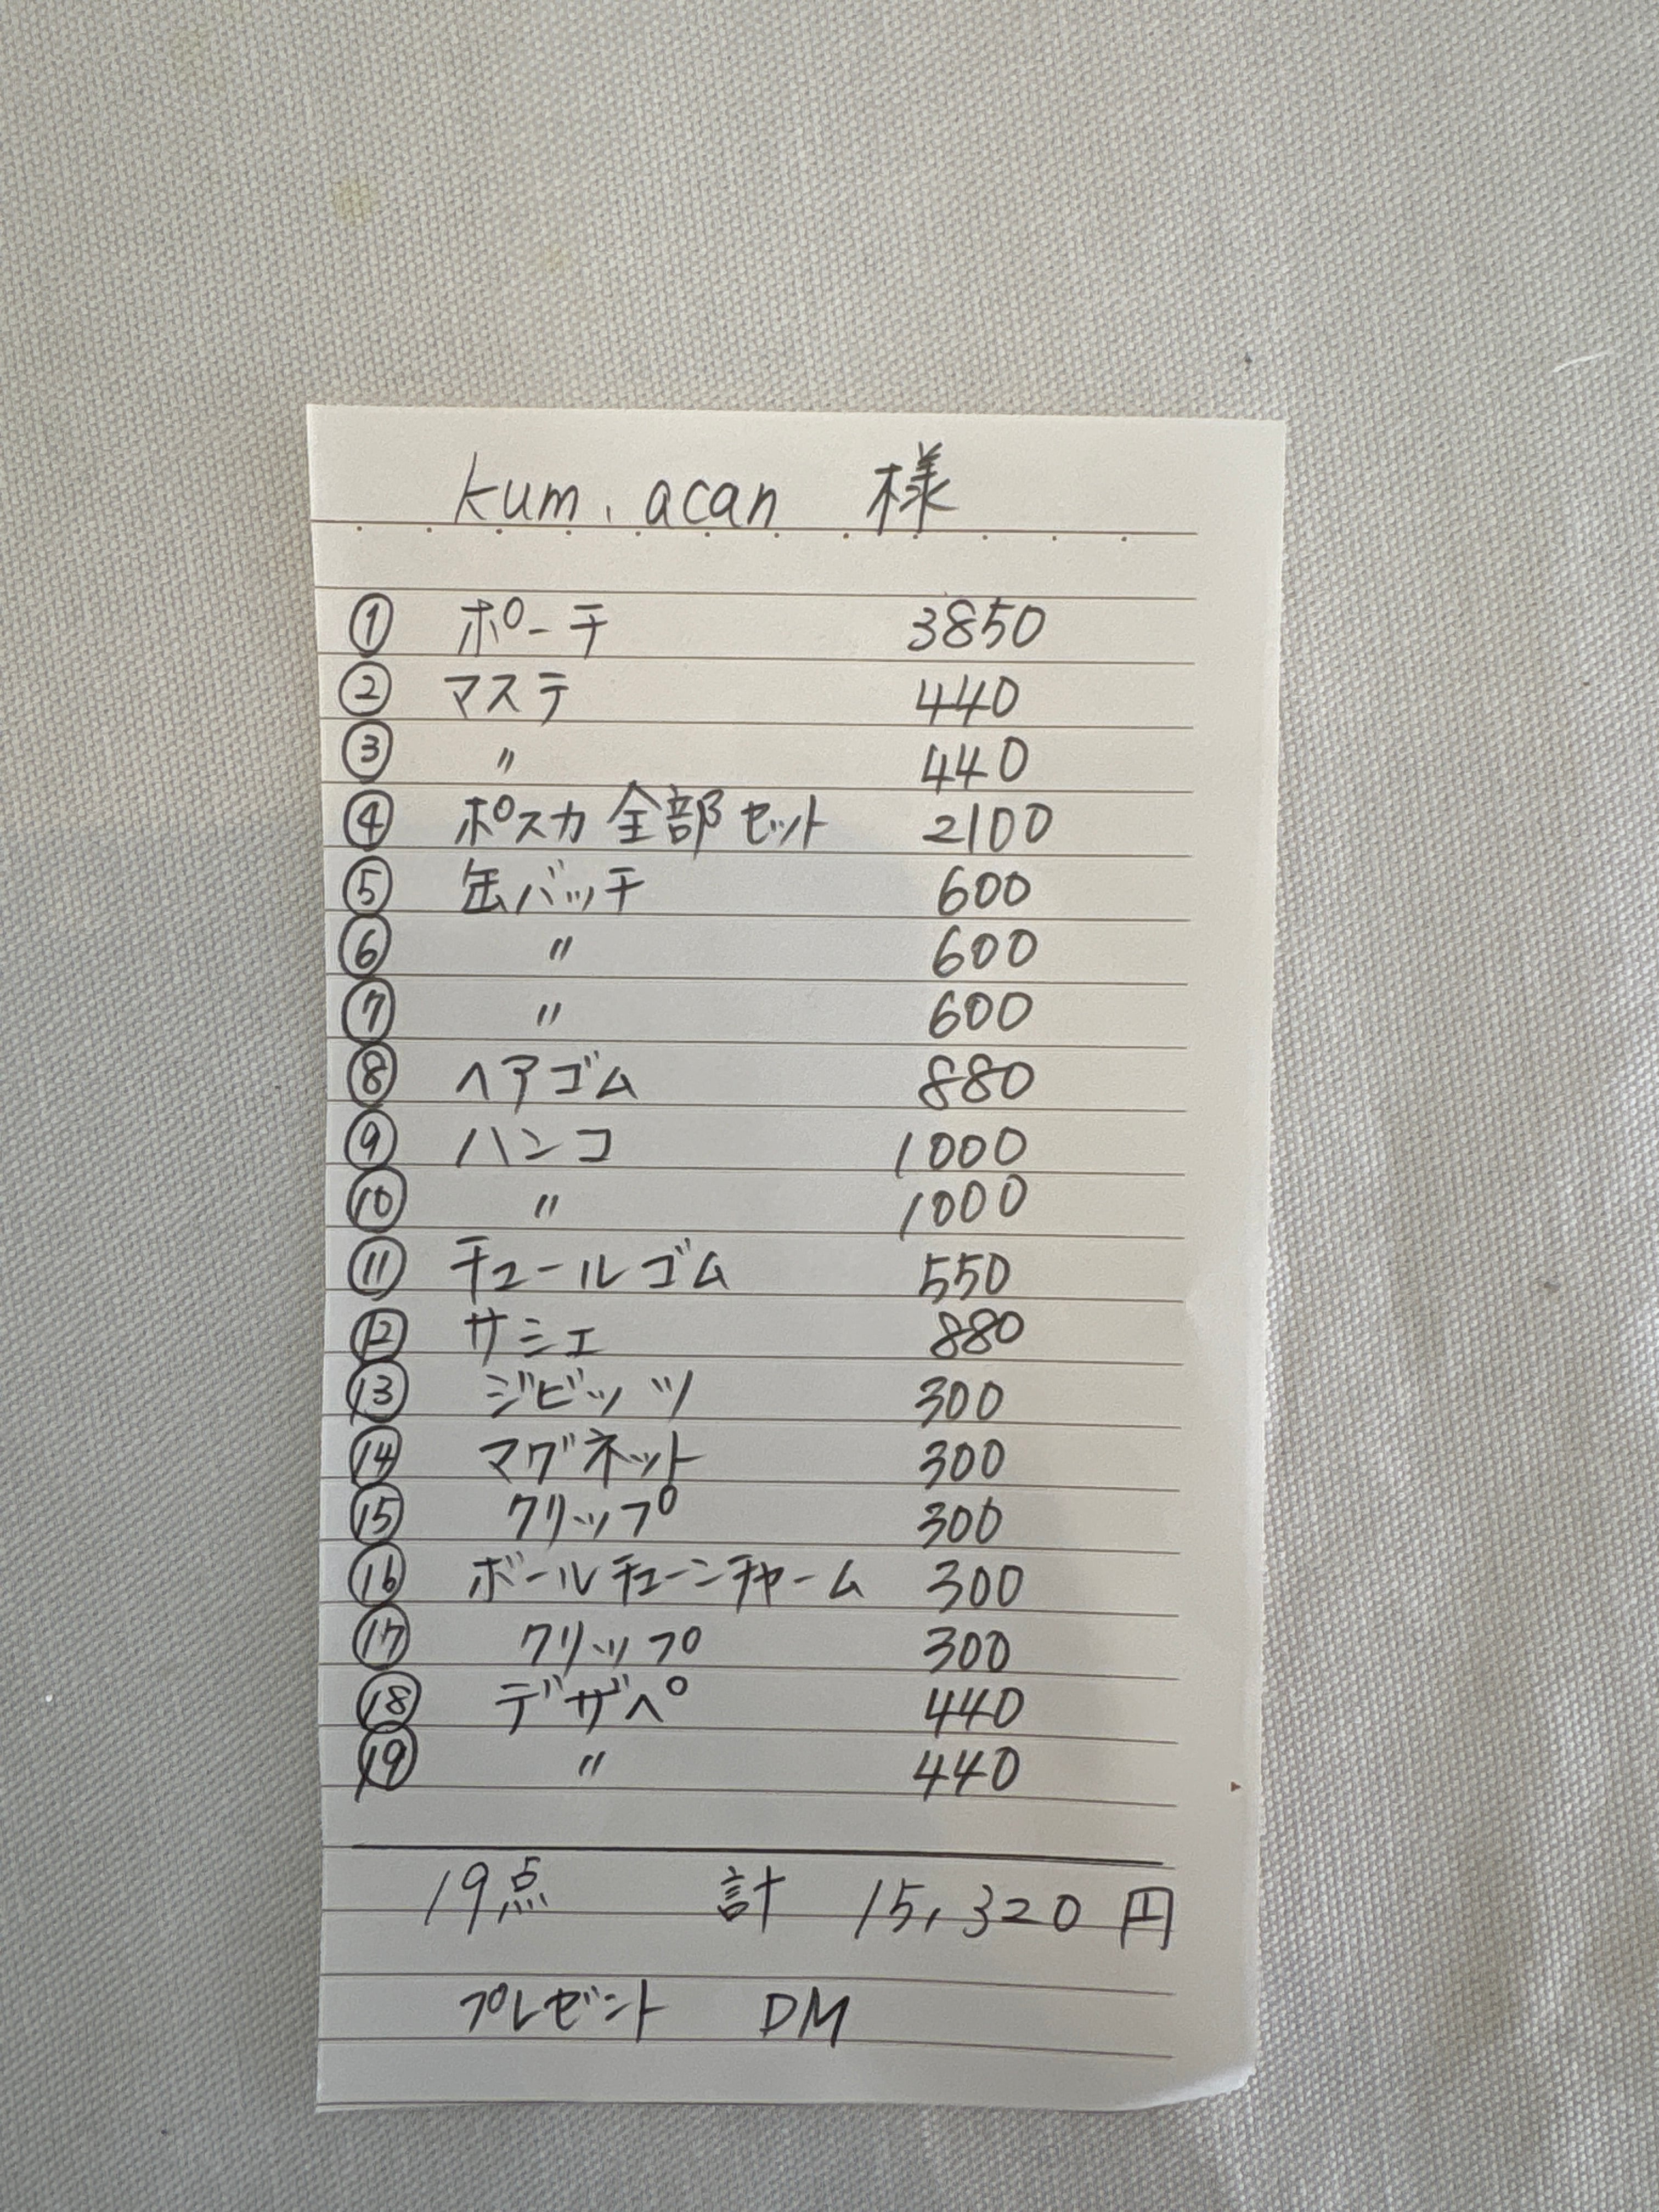 kum.acan 様
① ポーチ 3850
② マステ 440
③ 〃 440
④ ポスカ 全部セット 2100
⑤ 缶バッチ 600
⑥ 〃 600
⑦ 〃 600
⑧ ヘアゴム 880
⑨ ハンコ 1000
⑩ 〃 1000
⑪ チュールゴム 550
⑫ サシェ 880
⑬ ジビッツ 300
⑭ マグネット 300
⑮ クリップ 300
⑯ ボールチェーンチャーム 300
⑰ クリップ 300
⑱ デザペ 440
⑲ 〃 440
19点 計 15,320円
プレゼント DM